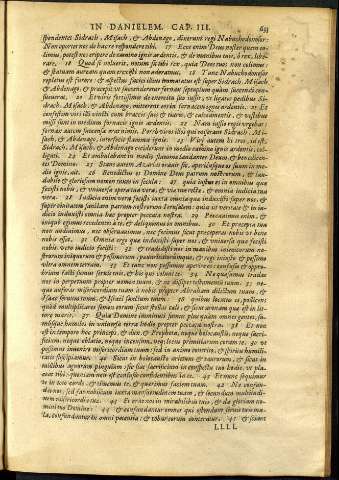 IN DANIELEM. CAP. III. 633
spondentes Sidrach, Misach, & Abdenago, dixerunt regi Nabuchodonosor:
Non oportet nos de hac re respondere tibi. 17 Ecce enim Deus noster quem co-
limus, potest nos eripere de camino ignis ardentis, & de manibus tuis, ô rex, libe-
rare. 18 Quod si noluerit, notum sit tibi rex, quia Deos tuos non colimus,
& statuam auream quam erexisti non adoramus. 19 Tunc Nabuchodonosor
repletus est furore: & aspectus faciei illius immutatus est super Sidrach, Misach,
& Abdenago, & præcepit, ut succenderetur fornax septuplum quàm succendi con-
sueuerat. 20 Et viris fortissimis de exercitu suo iussit, ut ligatis pedibus Si-
drach, Misach, & Abdenago, mitterent eos in fornacem ignis ardentis. 21 Et
confestim viri illi vincti cum braccis suis & tiaris, & calceamentis, & vestibus
missi sunt in medium fornacis ignis ardentis. 22 Nam iussio regis vrgebat:
fornax autem succensa erat nimis. Porrò viros illos qui miserant Sidrach, Mi-
sach, & Abdenago, interfecit flamma ignis. 23 Viri autem hi tres, id est,
Sidrach, Misach, & Abdenago ceciderunt in medio camino ignis ardentis, col-
ligati. 24 Et ambulabant in medio flammæ laudantes Deum, & benedicen-
tes Domino. 25 Stans autem Azarias orauit sic, aperiensque os suum in me-
dio ignis, ait. 26 Benedictus es Domine Deus patrum nostrorum, & lau-
dabile & gloriosum nomen tuum in sæcula: 27 quia iustus es in omnibus quæ
fecisti nobis, & vniuersa opera tua vera, & viæ tuæ rectæ, & omnia iudicia tua
vera. 28 Iudicia enim vera fecisti iuxta omnia quæ induxisti super nos, &
super ciuitatem sanctam patrum nostrorum Ierusalem: quia in veritate & in iu-
dicio induxisti omnia hæc propter peccata nostra. 29 Peccauimus enim, &
iniquè egimus recedentes à te, & deliquimus in omnibus. 30 Et præcepta tua
non audiuimus, nec obseruauimus, nec fecimus sicut præceperas nobis vt bene
nobis esset. 31 Omnia ergo quæ induxisti super nos, & vniuersa quæ fecisti
nobis, vero iudicio fecisti: 32 & tradidisti nos in manibus inimicorum no-
strorum iniquorum & pessimorum, præuaricatorumque, & regi iniusto & pessimo
vltra omnem terram. 33 Et nunc non possumus aperire os: confusio & oppro-
brium facti sumus seruis tuis, & his qui colunt te. 34 Ne quæsumus tradas
nos in perpetuum propter nomen tuum, & ne dissipes testamentum tuum. 35 ne-
que auferas misericordiam tuam à nobis propter Abraham dilectum tuum, &
Isaac seruum tuum, & Israel sanctum tuum: 36 quibus locutus es, pollicens
quod multiplicares semen eorum sicut stellas cæli, & sicut arenam quæ est in lit-
tore maris. 37 Quia Domine imminuti sumus plus quàm omnes gentes, su-
musque humiles in vniuersa terra hodie propter peccata nostra. 38 Et non
est in tempore hoc princeps, & dux, & Propheta, neque holocaustum, neque sacri-
ficium, neque oblatio, neque incensum, neque locus primitiarum coram te. 39 vt
possimus inuenire misericordiam tuam: sed in animo contrito, & spiritu humili-
tatis suscipiamur. 40 Sicut in holocausto arietum & taurorum, & sicut in
millibus agnorum pinguium: sic fiat sacrificium in conspectu tuo hodie, vt pla-
ceat tibi: quoniam non est confusio confidentibus in te. 41 Et nunc sequimur
te in toto corde, & timemus te, & quærimus faciem tuam. 42 Ne confun-
das nos, sed fac nobiscum iuxta mansuetudinem tuam, & secundùm multitudi-
nem misericordiæ tuæ. 43 Et erue nos in mirabilibus tuis, & da gloriam no-
mini tuo Domine: 44 & confundantur omnes qui ostendunt seruis tuis ma-
la, confundantur in omni potentia: & robur eorum conteratur. 45 & sciant
LLLL